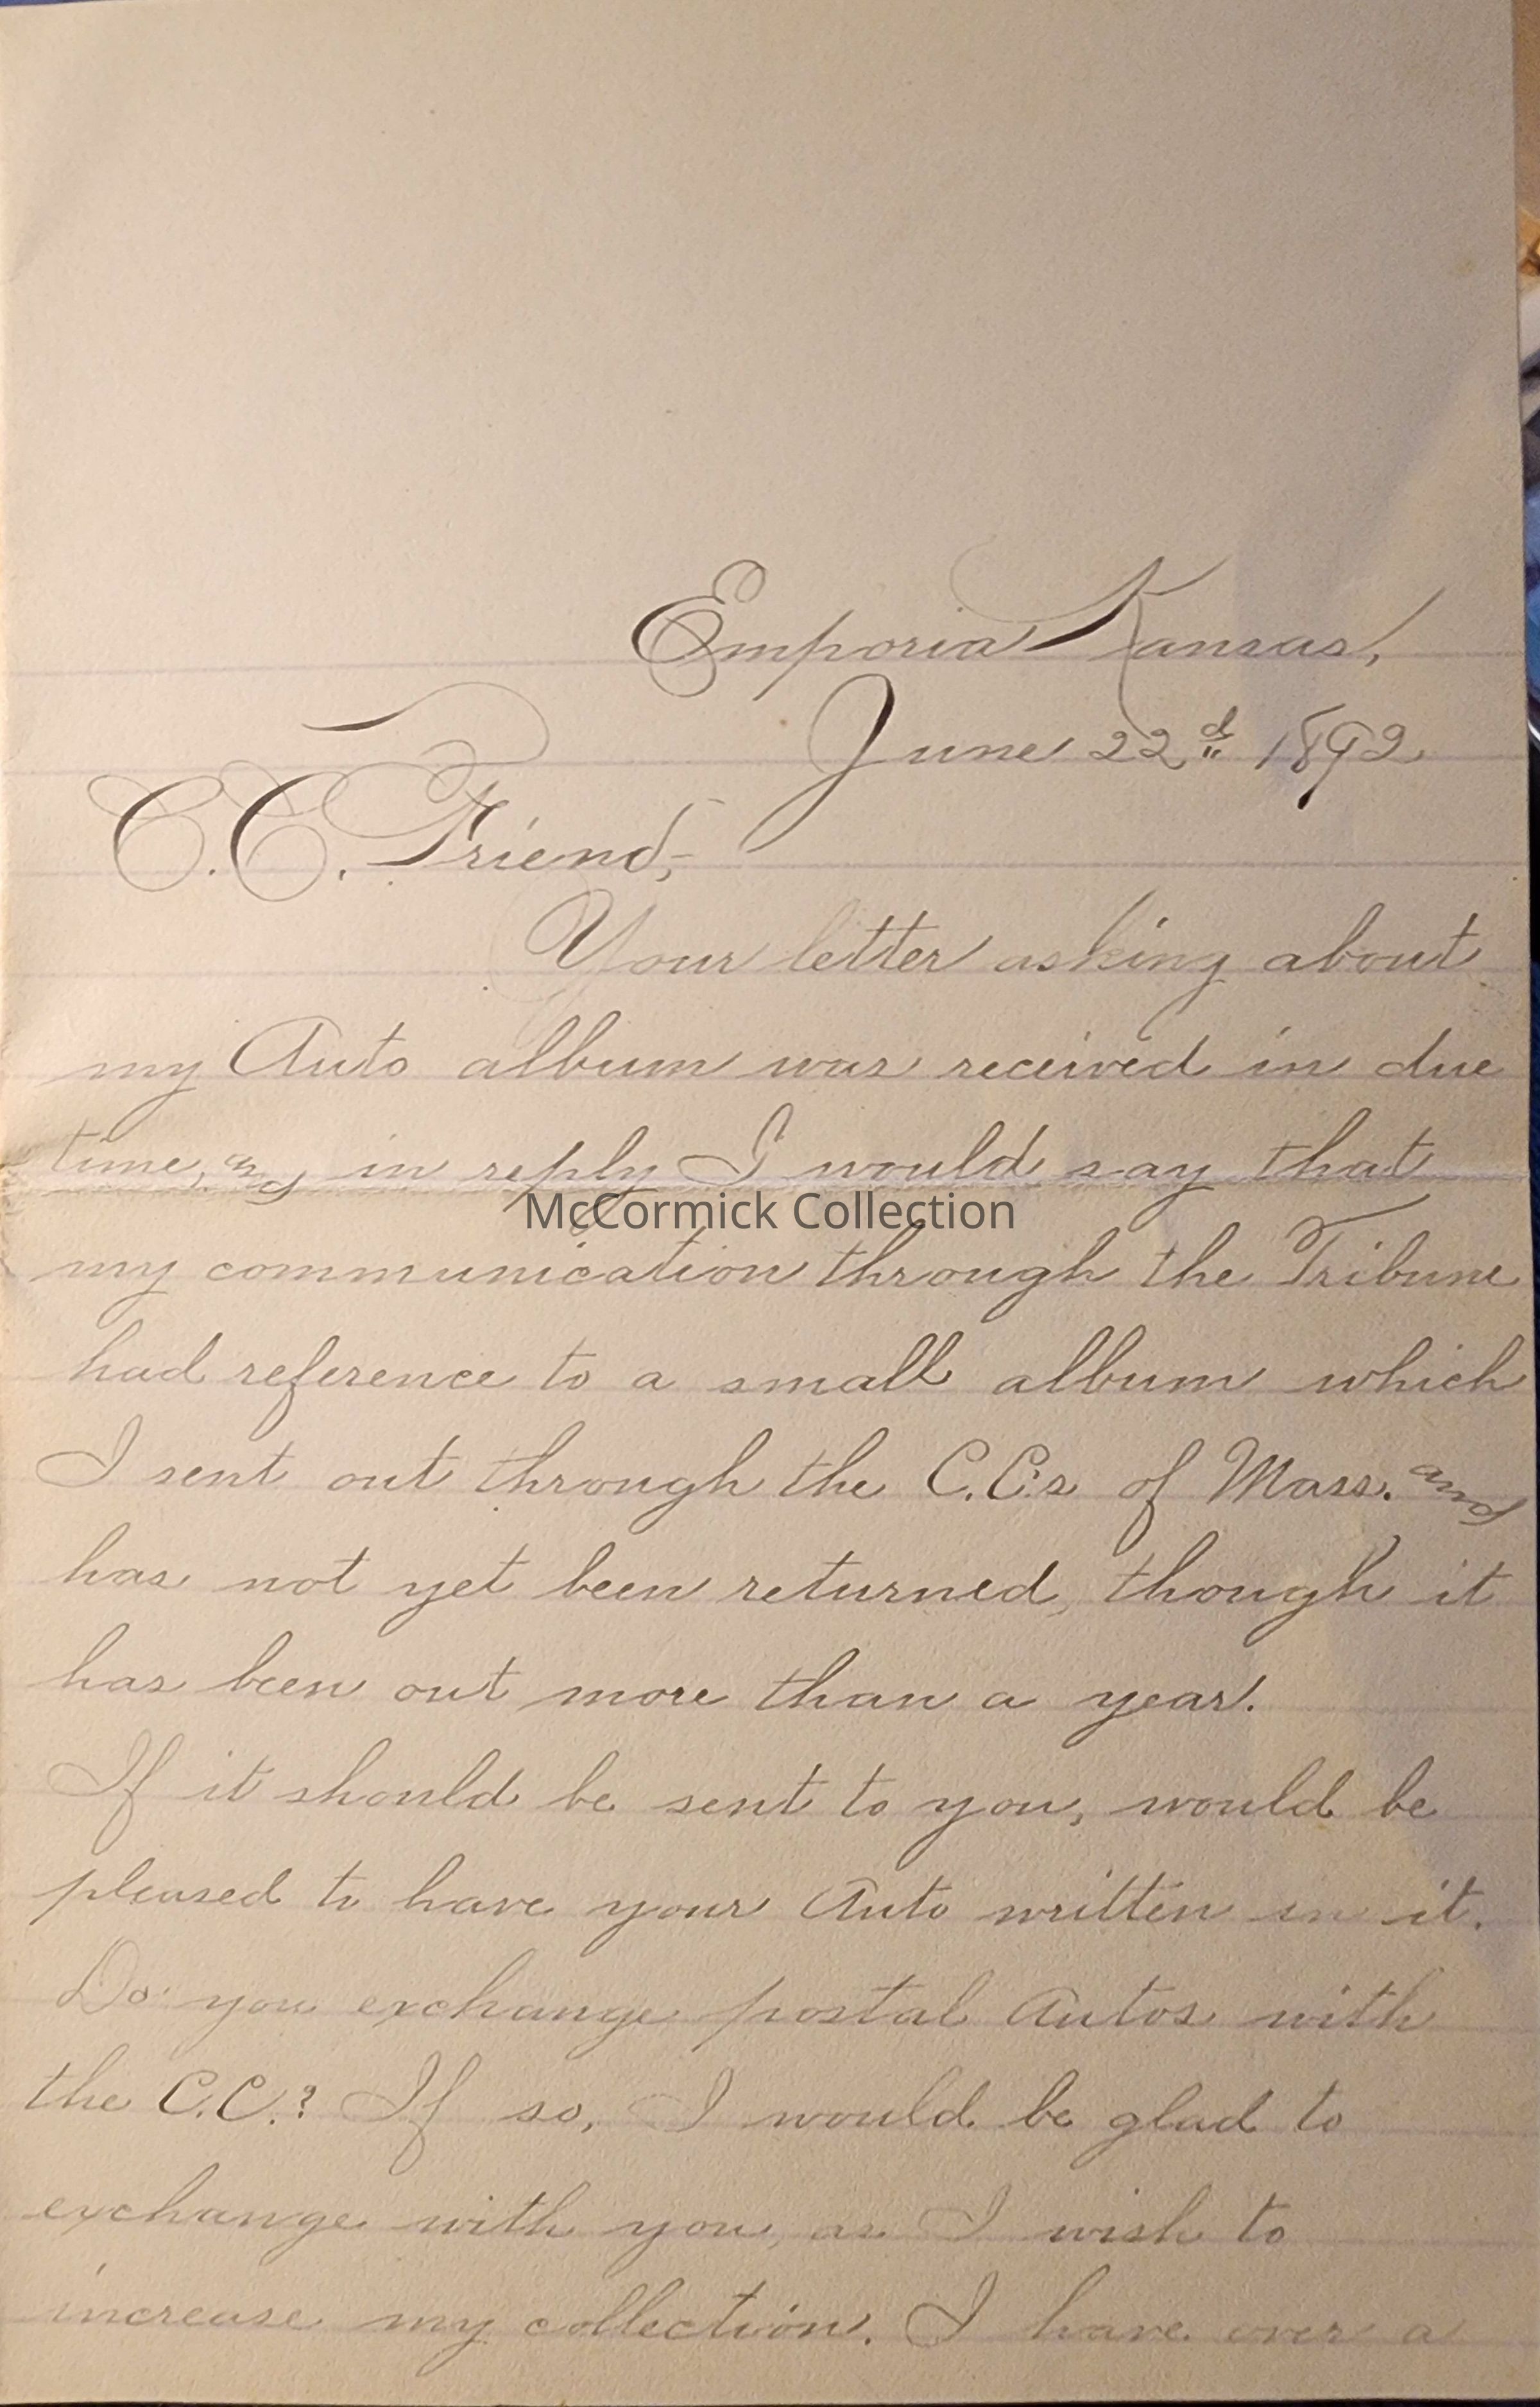 Emporia Kansas,
June 22d 1892
C.C. Friend,-
Your letter asking about
my Auto album was received in due
time, and in reply I would say that
McCormick Collection
my communication through the Tribune
had reference to a small album which
I sent out through the C.C's of Mass. and
has not yet been returned, though it
has been out more than a year.
If it should be sent to you, would be
pleased to have your Auto written in it.
Do you exchange postal Autos with
the C.C.? If so, I would be glad to
exchange with you, as I wish to
increase my collection. I have over a